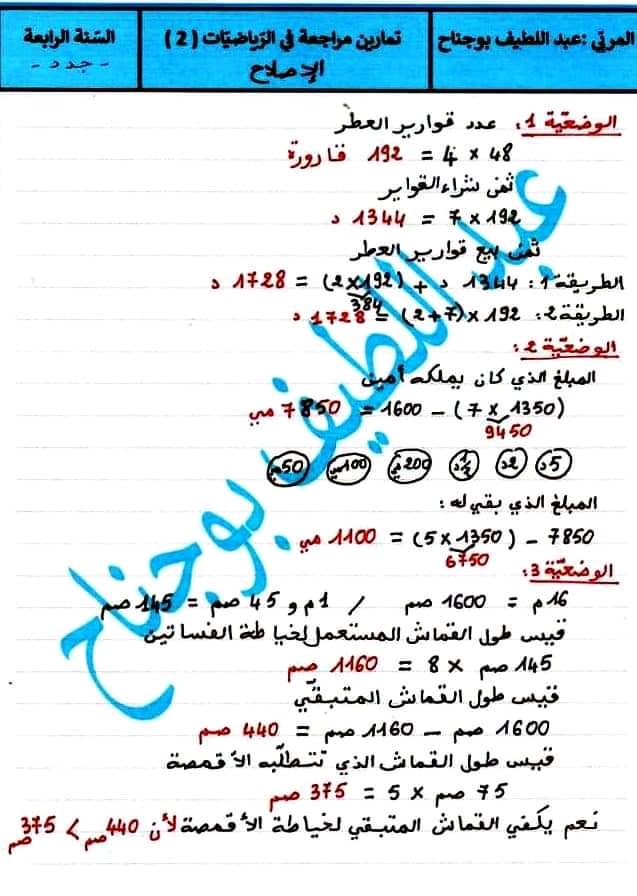 المربّي :عبد اللطيف بوجناح
تمارين مراجعة في الرّياضيّات ( 2 )
الإصلاح
السّنة الرابعة
- جدد -
الوضعيّة 1: عدد قوارير العطر
48 × 4 = 192 قارورة
ثمن شراء القوارير
192 × 7 = 1344 د
ثمن بيع قوارير العطر
الطريقة 1: 1344 د + (192×2) = 1728 د
384
الطريقة 2: 192 × (7+2) = 1728 د
الوضعيّة 2:
المبلغ الذي كان يملكه أمين
(1350 × 7) – 1600 = 7850 مي
9450
5د 2د 1/2د 200مي 100مي 50مي
المبلغ الذي بقي له :
7850 – (1350 × 5) = 1100 مي
6750
الوضعيّة 3:
16م = 1600 صم / 1م و 45 صم = 145 صم
قيس طول القماش المستعمل لخياطة الفساتين
145 صم × 8 = 1160 صم
قيس طول القماش المتبقّي
1600 صم – 1160 صم = 440 صم
قيس طول القماش الذي تتطلّبه الأقمصة
75 صم × 5 = 375 صم
نعم يكفي القماش المتبقي لخياطة الأقمصة لأن 440صم > 375صم
عبد اللطيف بوجناح